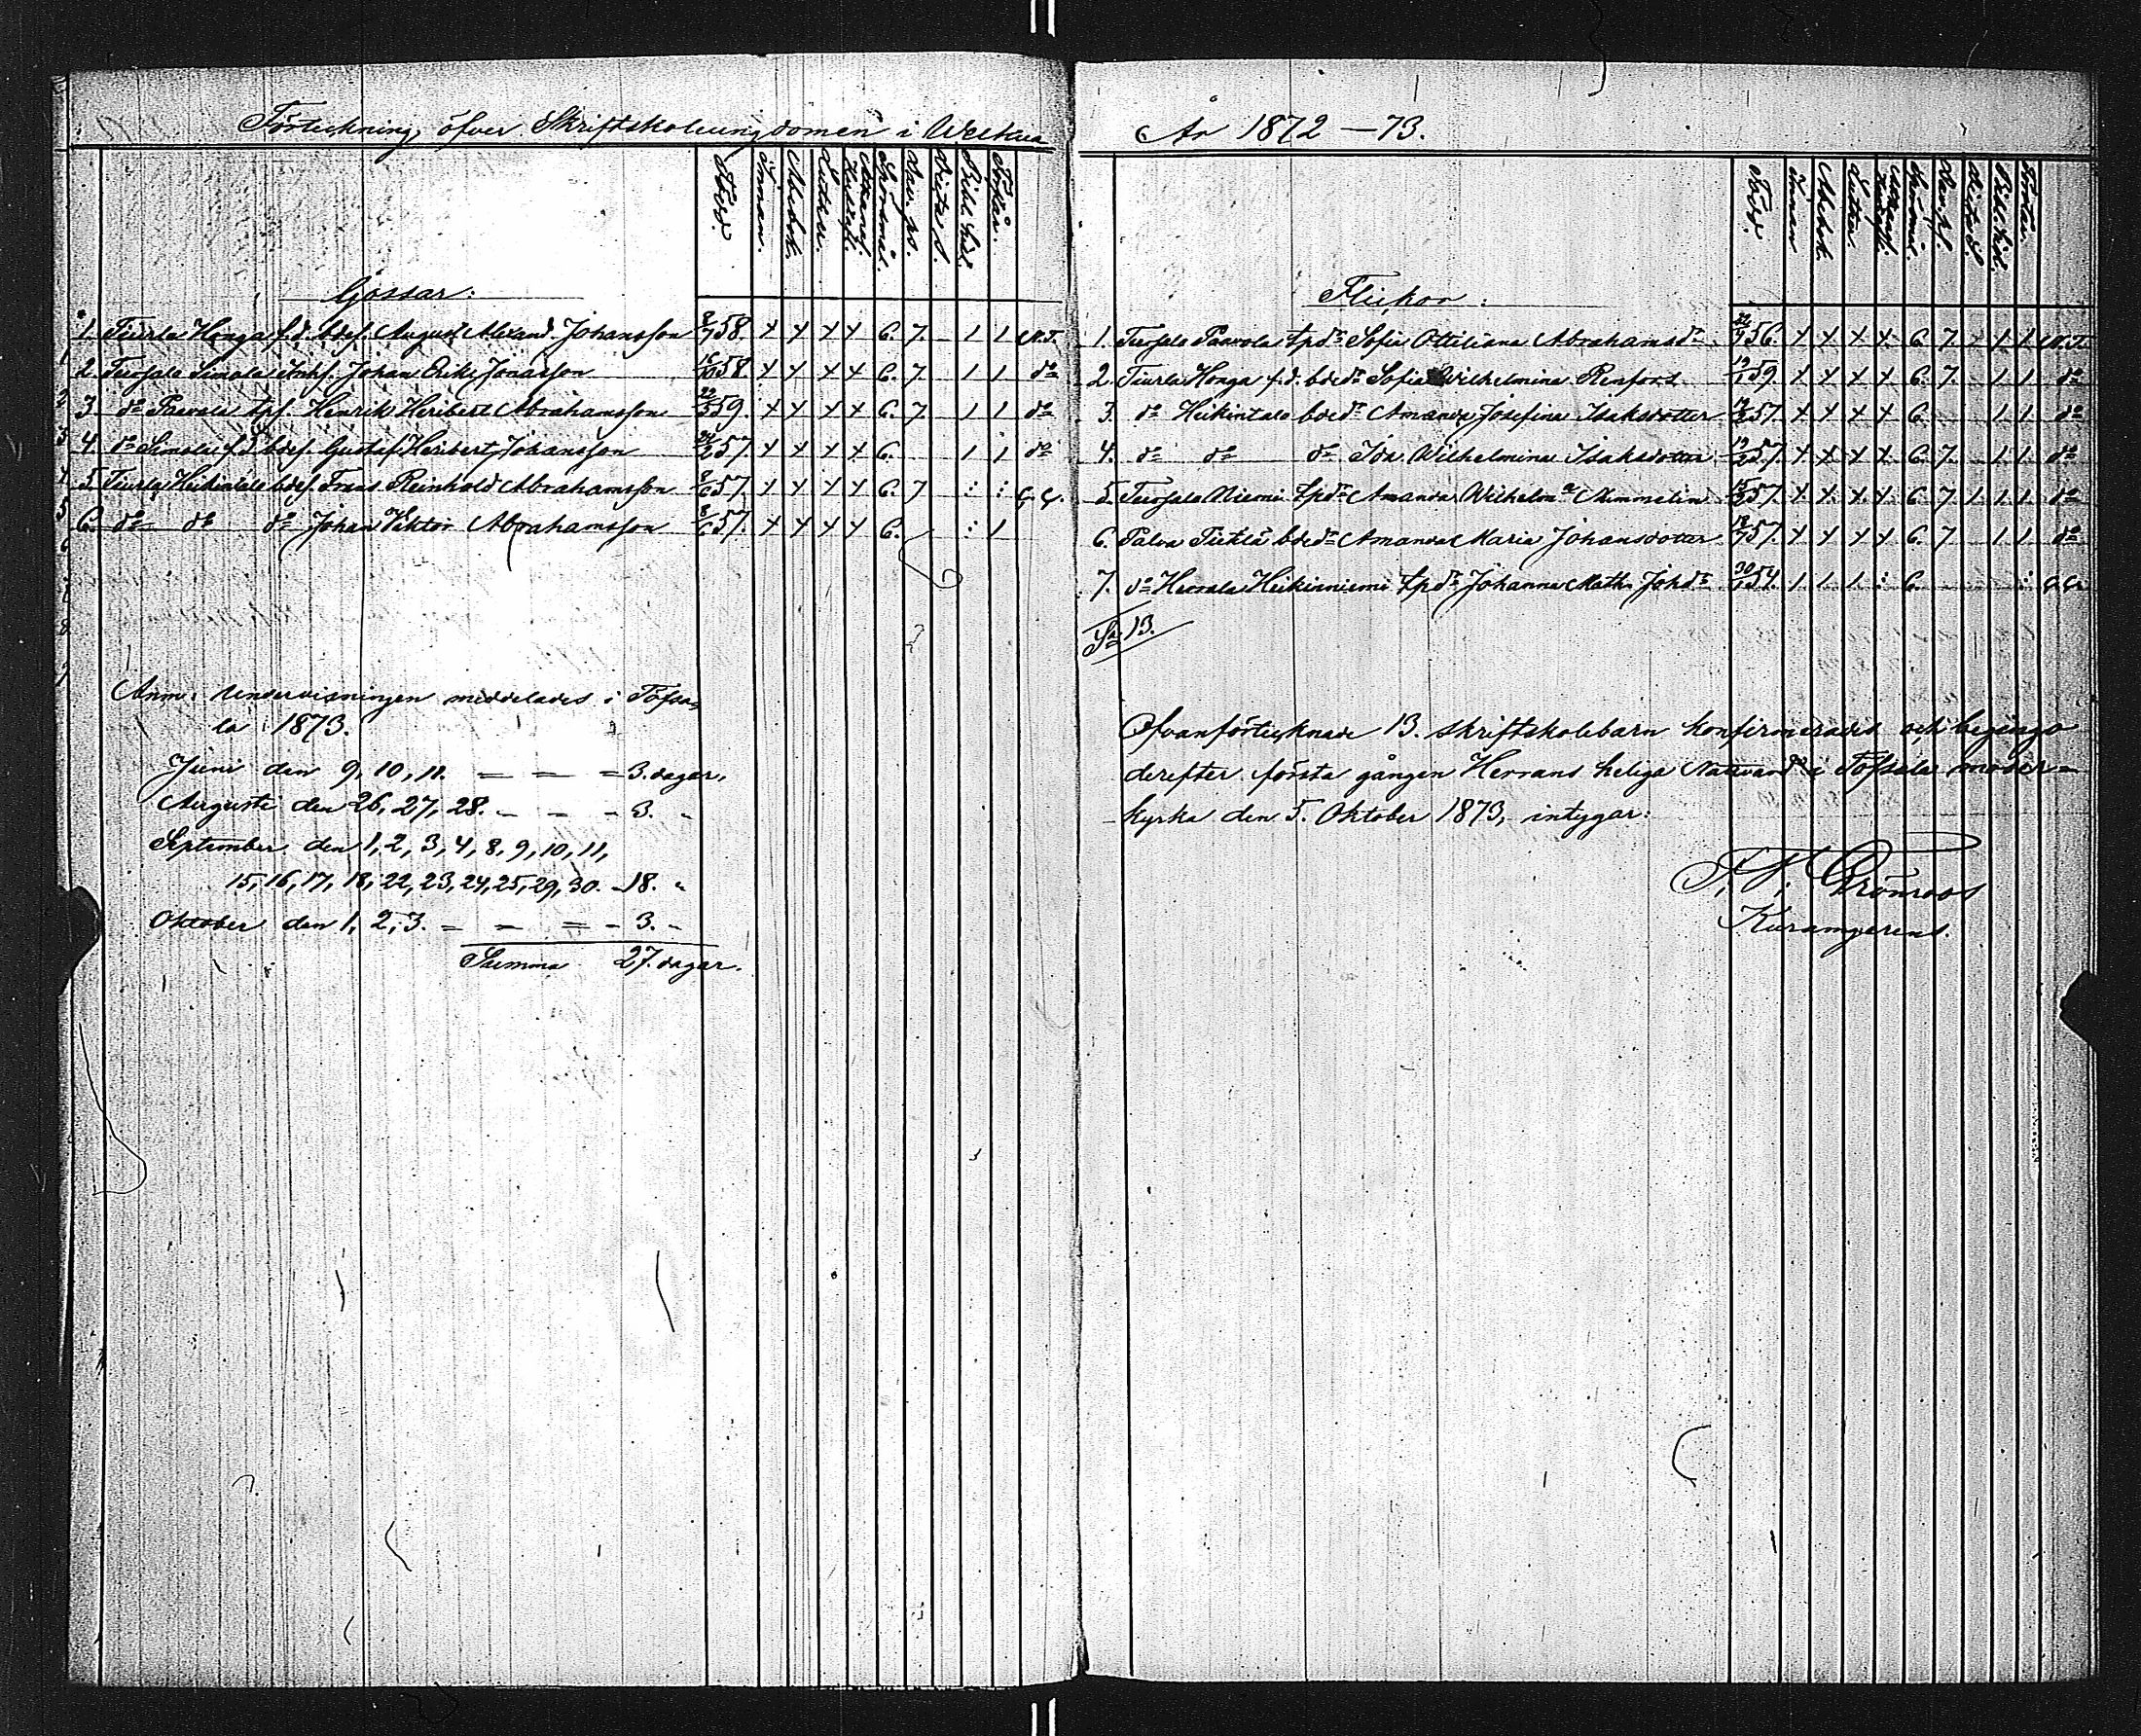 Förteckning öfver Skriftskoleungdomen i Westkua
År 1872–73.
Född. Innan. Abcbok. Luther. Spörsmål. Dav. ps. Bibl. hist. Förstår.
Gossar:
1. Tiurla Honga f.d. bdes. August Alexand. Johansson 8/7 58. x x x x 6. 7. 1 1 N.T.
2. Teersalo Simola Inhs. Johan Erik Jonasson 16/10 58. x x x x 6. 7. 1 1 do
3 do Paavola tps. Henrik Heribert Abrahamsson 22/3 59. x x x x 6. 7. 1 1 do
4. do Simola f.d. bdes. Gustaf Heribert Johansson 24/2 57. x x x x 6. 1 1 do
5. Tiurla Heikintalo bdes. Frans Reinhold Abrahamsson 8/6 57. x x x x 6. 7 : : G.G.
6. do do do Johan Viktor Abrahamsson 8/6 57. x x x x 6. : 1
Anm. Undervisningen meddelades i Töfsa-
la 1873.
Juni den 9, 10, 11. — — — 3. dagar.
Augusti den 26, 27, 28. - - - 3. "
September den 1, 2, 3, 4, 8, 9, 10, 11,
15, 16, 17, 18, 22, 23, 24, 25, 29, 30. - 18. "
Oktober den 1, 2, 3. - - = - 3. "
Summa 27. dagar.
Född. Innan Abcbok Luther. Spörsm. Dav. ps. Bibl. hist. Förstår.
Flickor:
1. Teersalo Paavola tpdr Sofia Ottiliana Abrahamsdr 22/4 56. x x x x 6. 7. 1 1 N.T.
2. Tiurla Honga f.d. bdedr Sofia Wilhelmina Renfors 19/1 59. x x x x 6. 7. 1 1 do
3. do Heikintalo bdedr Amanda Josefina Isaksdotter 57. x x x x 6. 1 1 do
4. do do do Ida Wilhelmina Isaksdotter 57. x x x x 6. 7. 1 1 do
5. Teersalo Niemi tpdr Amanda Wilhelma Nimmelin 57. x x x x 6. 7. 1 1 1 do
6. Palva Tieklä bdedr Amanda Maria Johansdotter 18/7 57. x x x x 6. 7 1 1 do
7. do Herrala Heikinniemi tpdr Johanna Math. Johdr 54. 1 1 1 : 6. : G.G.
Sa 13.
Ofvanförtecknade 13. skriftskolebarn konfirmerades och begingo
derefter första gången Herrans heliga Nattvard i Töfsala moder-
kyrka den 5. Oktober 1873, intygar:
Grönroos